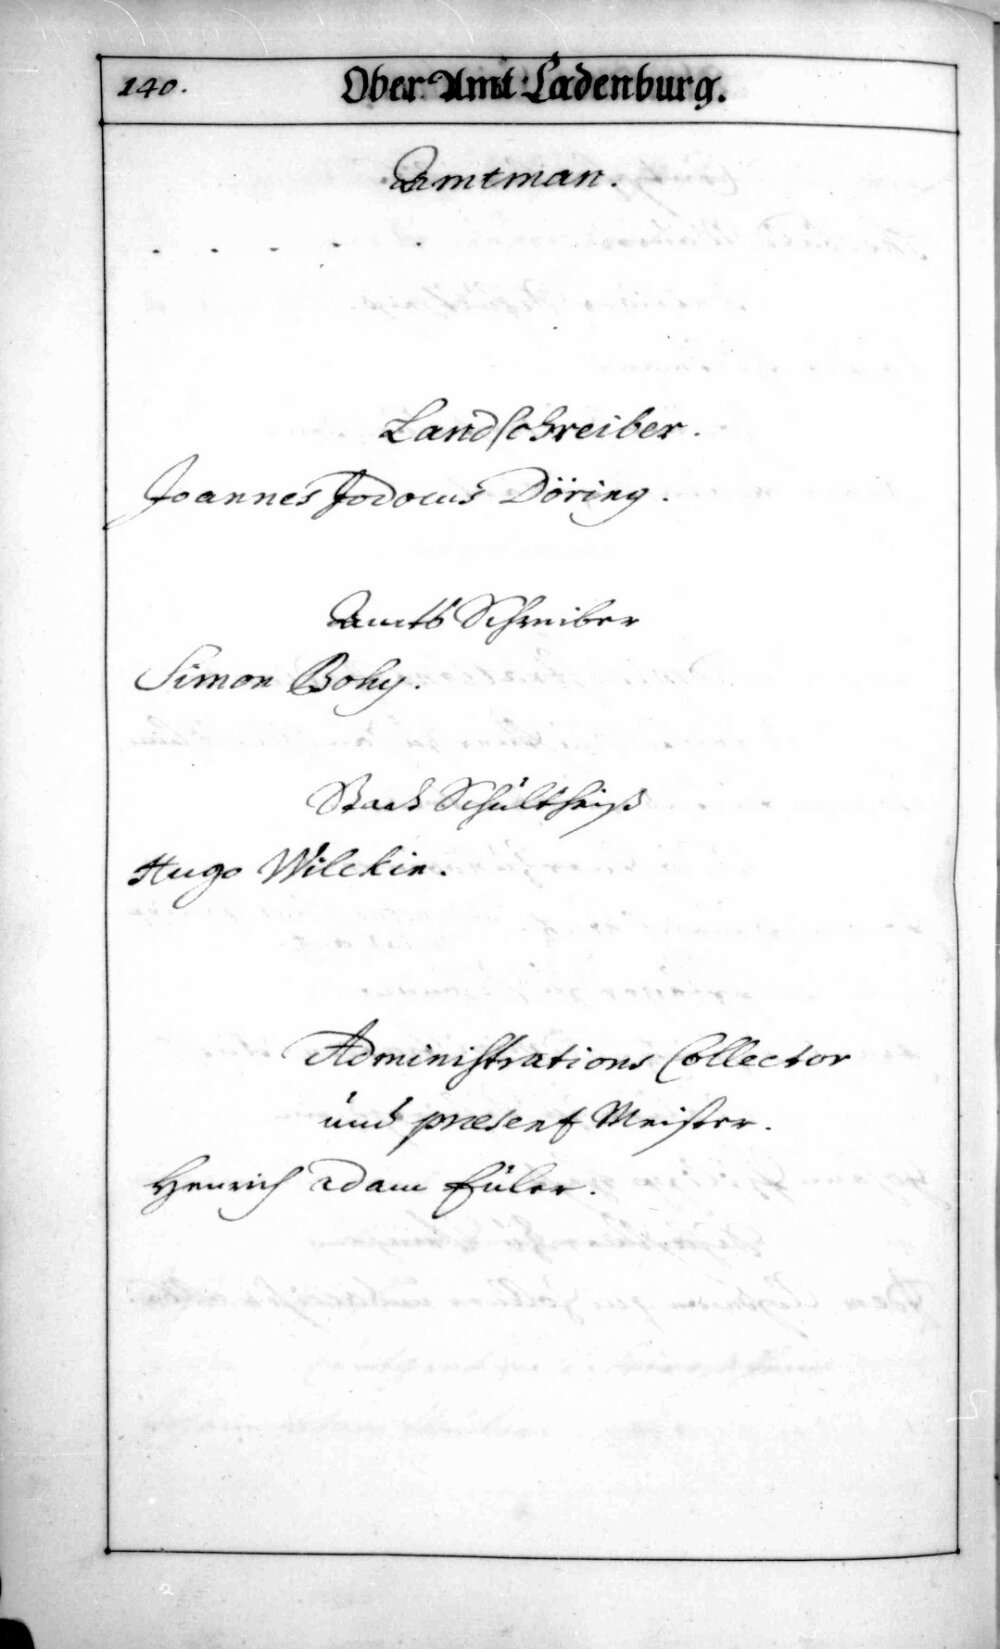 140.
Ober Amt Ladenburg.
Amtman.
. . . . .
Landschreiber.
Joannes Jodocus Döring.
Ambts Schreiber
Simon Bohy.
Stadt Schultheiß
Hugo Wilckin.
Administrations Collector
und præsentz Meister.
Henrich Adam Euler.